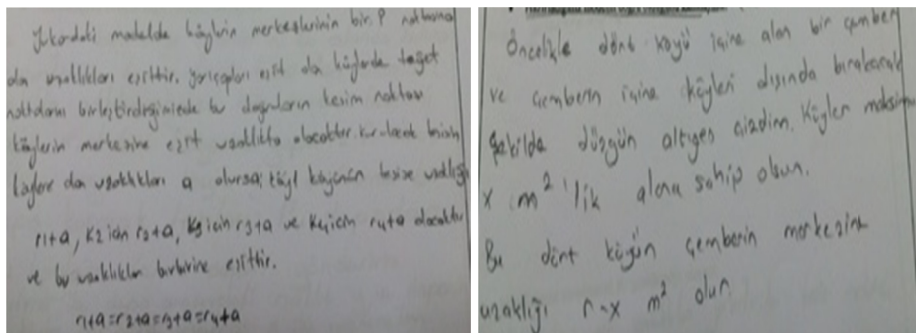 Yukarıdaki modelde köylerin merkezlerinin bir P noktasına
da uzaklıkları eşittir. yarıçapları eşit da köylerde teğet
noktaların birleştirdiğimizde bu doğruların kesim noktası
köylerin merkezine eşit uzaklıkta olacaktır. besinin
köylere da uzaklıkları a olursa; köyünün besine uzaklığı
r1+a, K2 için r2+a, K3 için r3+a ve K4 için r4+a olacaktır
ve bu uzaklıklar birbirine eşittir.
r1+a=r2+a=r3+a=r4+a
Öncelikle dört köyü içine alan bir çember
ve çemberin içine köyleri dışında bırakacak
şekilde düzgün altıgen çizdim. Köyler maksimum
x m² 'lik alana sahip olsun.
Bu dört köyün çemberin merkezine
uzaklığı r-x m² olur